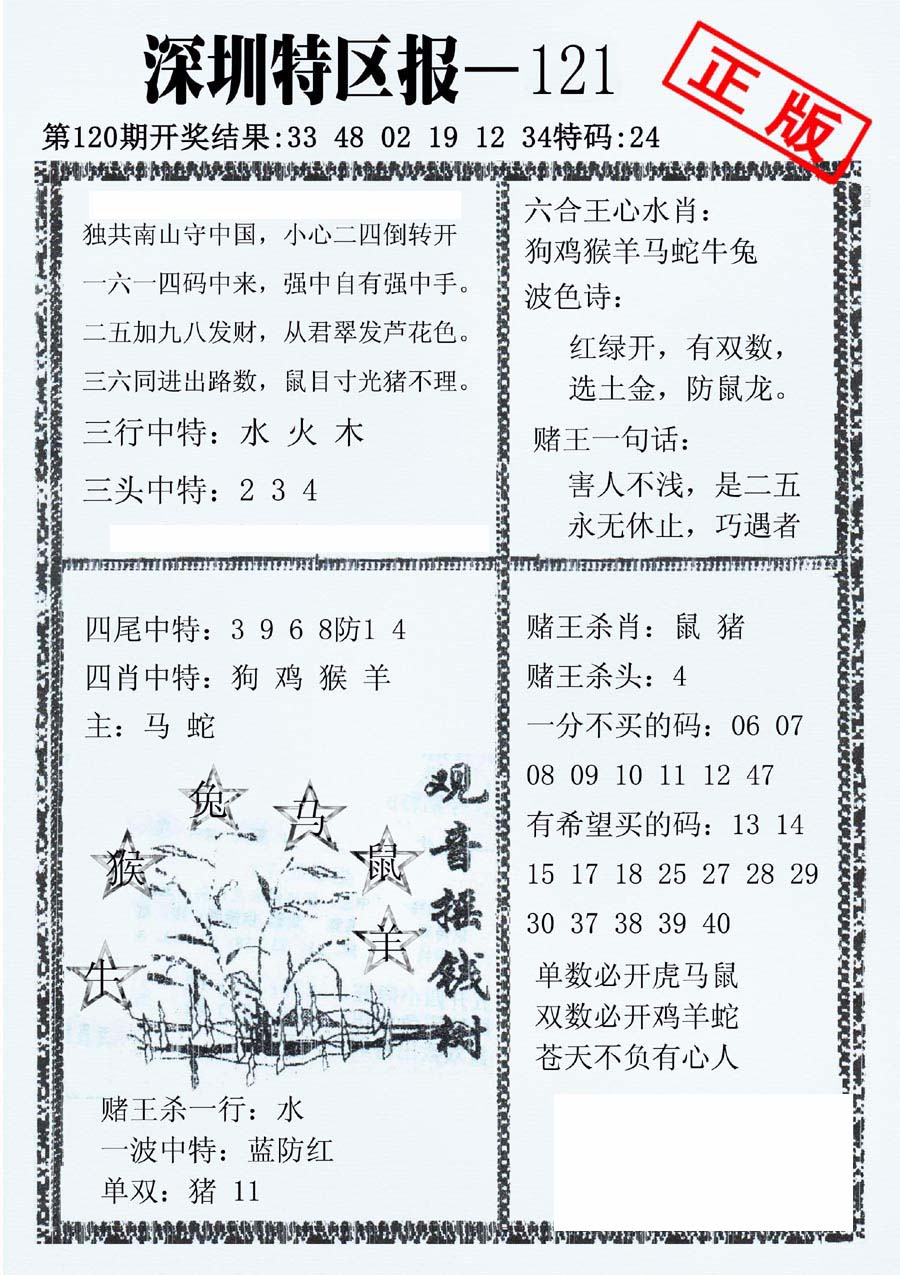 深圳特区报—121
正版
第120期开奖结果:33 48 02 19 12 34特码:24
独共南山守中国，小心二四倒转开
一六一四码中来，强中自有强中手。
二五加九八发财，从君翠发芦花色。
三六同进出路数，鼠目寸光猪不理。
三行中特：水 火 木
三头中特：2 3 4
六合王心水肖：
狗鸡猴羊马蛇牛兔
波色诗：
红绿开，有双数，
选土金，防鼠龙。
赌王一句话：
害人不浅，是二五
永无休止，巧遇者
四尾中特：3 9 6 8防1 4
四肖中特：狗 鸡 猴 羊
主：马 蛇
兔
马
猴
鼠
羊
牛
观音摇钱树
赌王杀一行：水
一波中特：蓝防红
单双：猪 11
赌王杀肖：鼠 猪
赌王杀头：4
一分不买的码：06 07
08 09 10 11 12 47
有希望买的码：13 14
15 17 18 25 27 28 29
30 37 38 39 40
单数必开虎马鼠
双数必开鸡羊蛇
苍天不负有心人